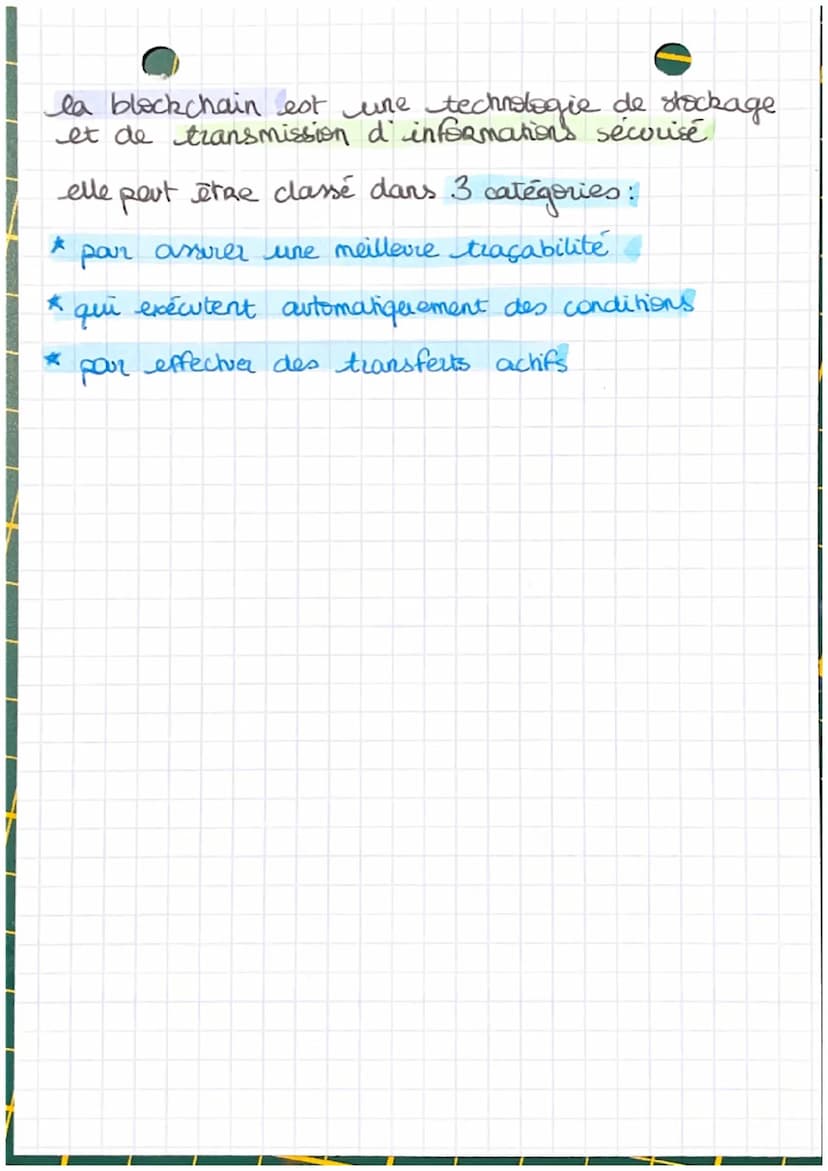 la blockchain est une technologie de stockage
et de transmission d'informations sécurisé
elle peut être classé dans 3 catégories :
* pour assurer une meilleure traçabilité
* qui exécutent automatiquement des conditions
* pour effectuer des transferts actifs